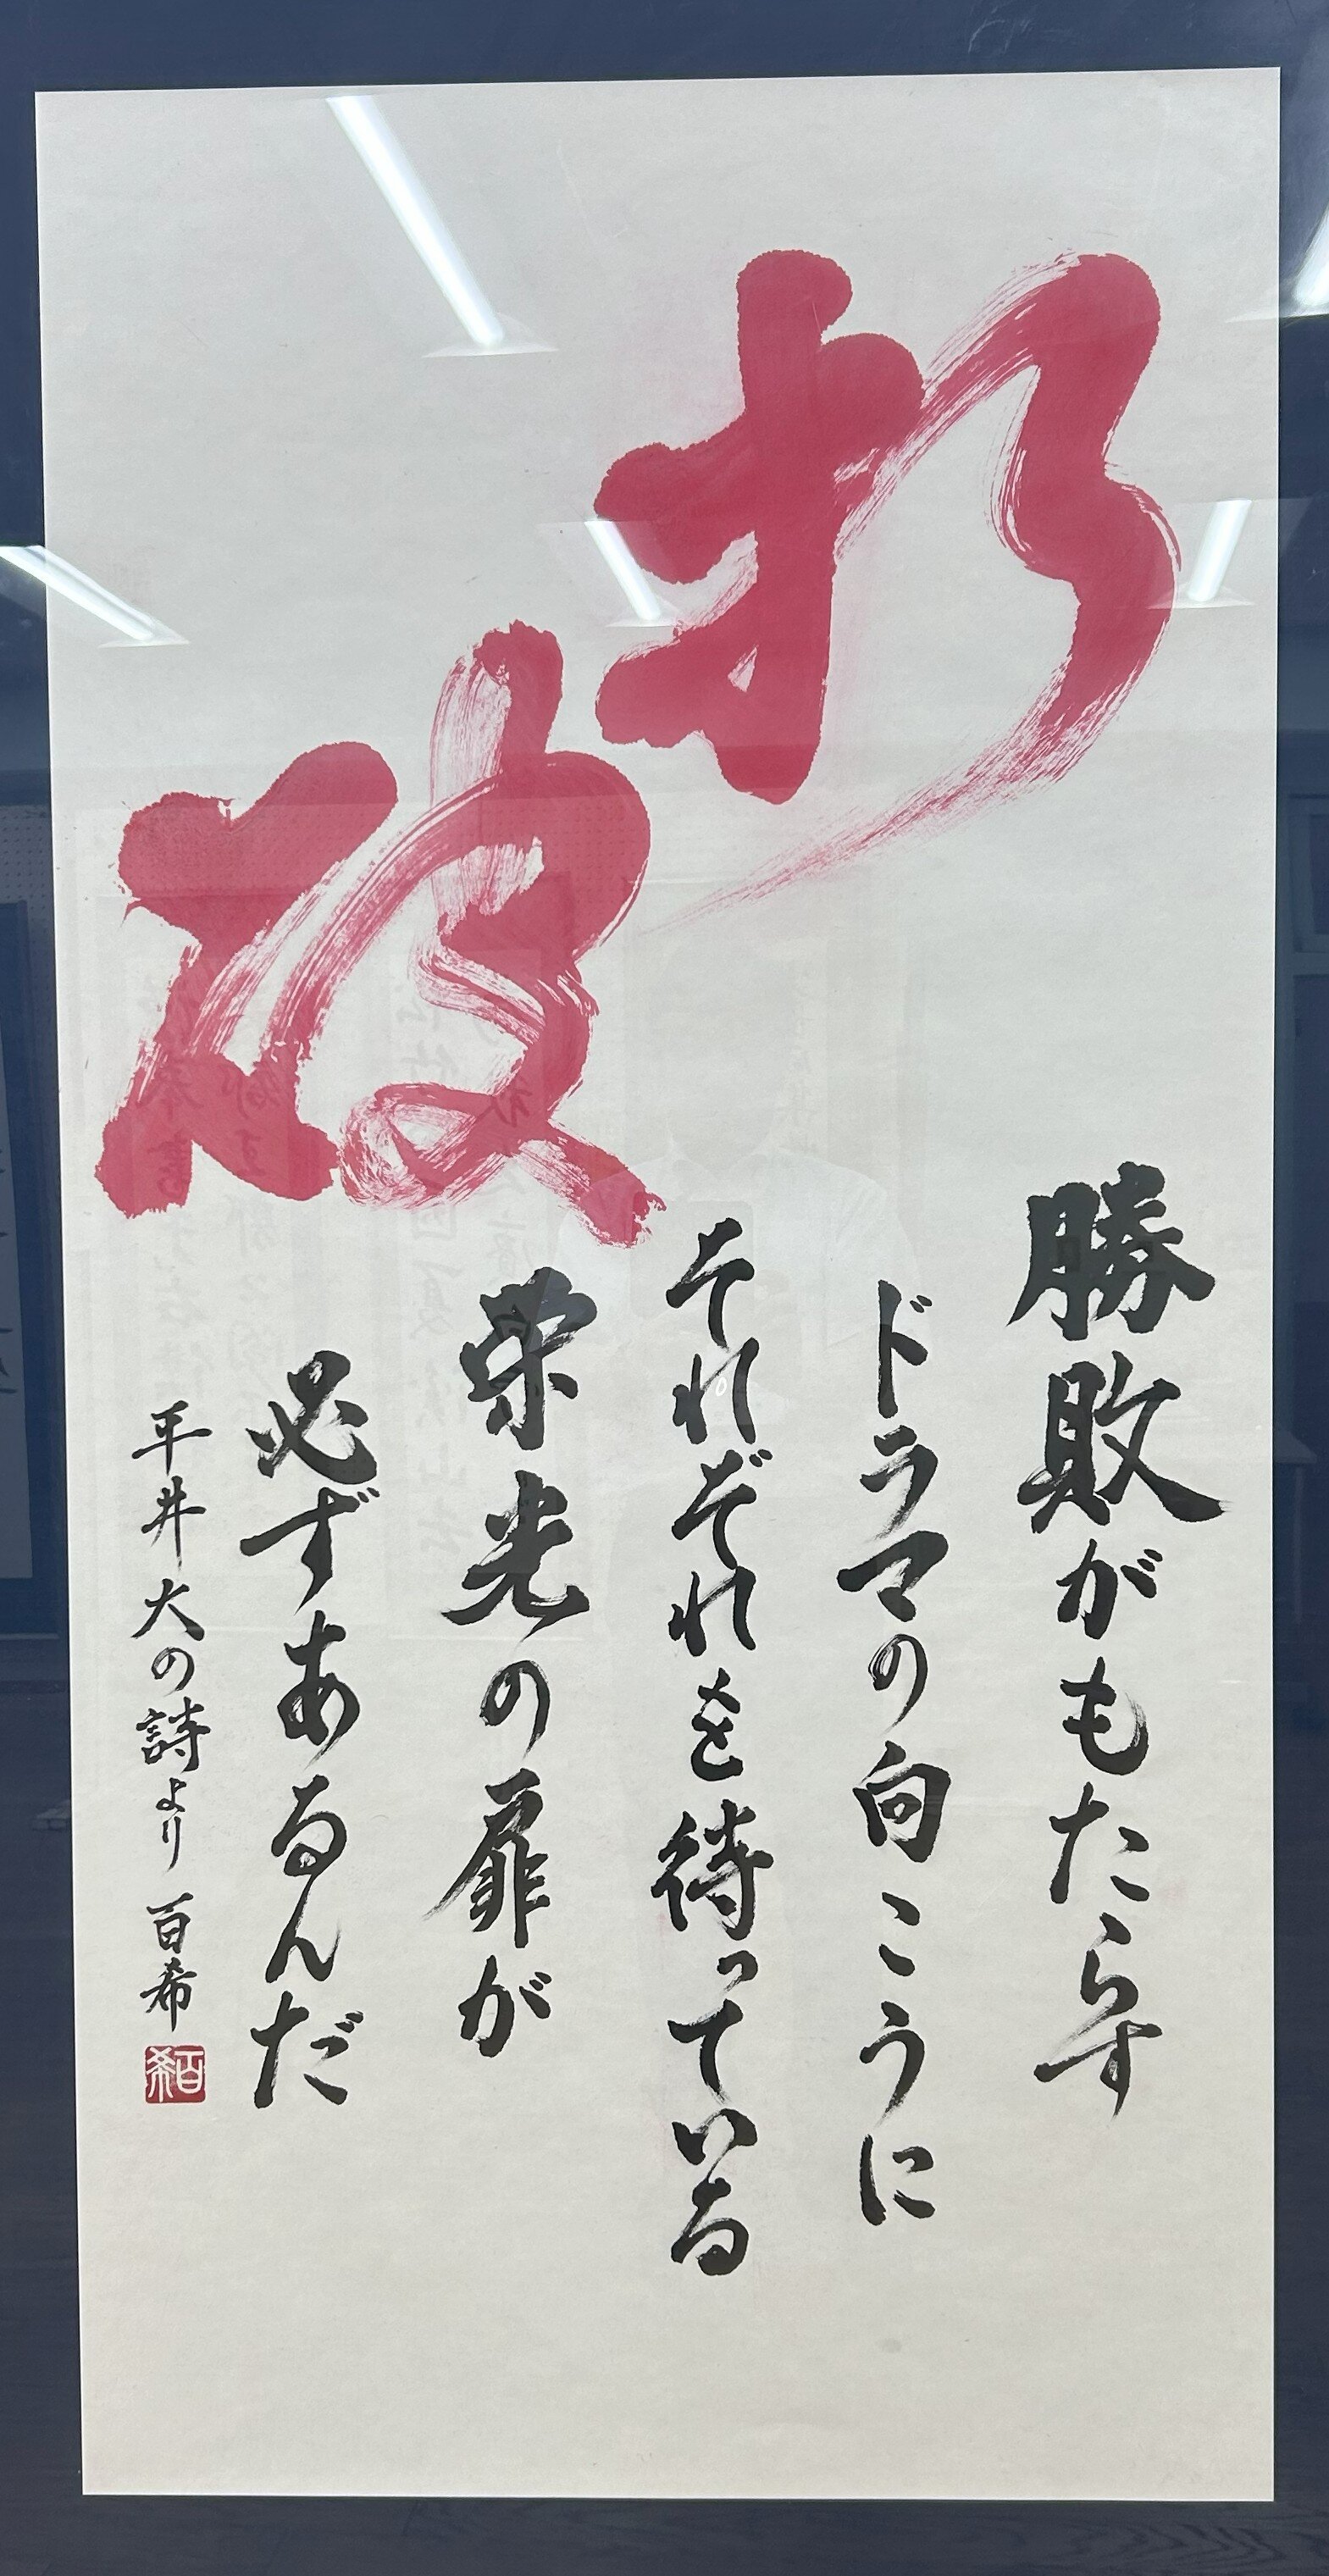 打破
勝敗がもたらす
ドラマの向こうに
それぞれを待っている
栄光の扉が
必ずあるんだ
平井大の詩より 百希
百希